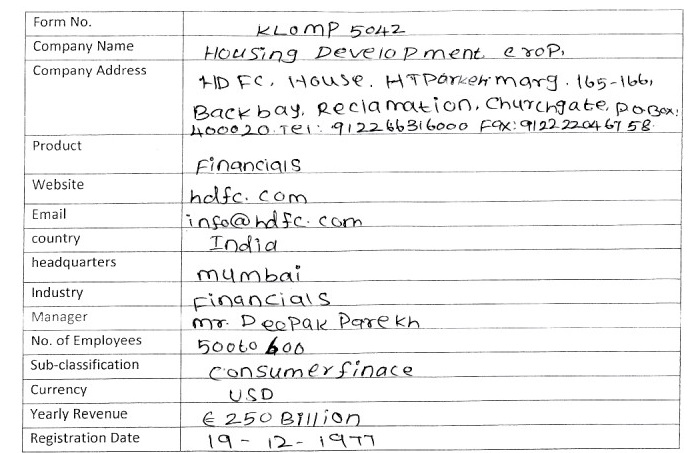 Form No. KLOMP 5042
Company Name Housing Development crop,
Company Address HDFC, House. HTParkeh marg. 165-166,
Backbay, Reclamation, Churchgate, PO Box:
400020. Tel: 912266316000 Fax: 912222046758.
Product Financials
Website hdfc. com
Email info@hdfc. com
country India
headquarters mumbai
Industry Financials
Manager mr. Deepak Parekh
No. of Employees 500to 600
Sub-classification consumerfinace
Currency USD
Yearly Revenue € 250 Billion
Registration Date 19 - 12 - 1977